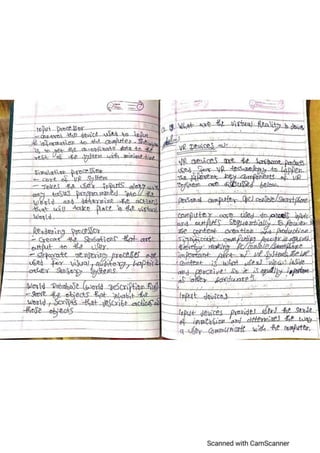 Input processor
- control the device used to input
information to the computer. The object
is to get the co-ordinate data to the
rest of the system with minimal time.
Simulation processor
- core of VR system
- Takes the user inputs along with
any tasks programmed into the
world and determine the actions
that will take place in the virtual
world.
Rendering processor
- Create the sensations that are
output to the user
- separate rendering processes are
used for visual, auditory, haptic &
other sensory systems
World Database (World Description file)
- Store the objects that inhabit the
world, scripts that describe actions of
those objects
What are the Virtual Reality
VR Devices
VR devices are the hardware products
used for VR technology to happen
the different key components of VR
system are discussed below.
Personal computer (PC) console/smartphone
Computer are used to process input
and outputs sequentially. To power
the content creation and production
significant computing power is required,
thereby making PC/console/smartphone
important part of VR systems. The VR
content is what users view inside
and perceive so it is equally important
as other hardware's.
Input devices
Input devices provides users the sense
of immersion and determines the way
a user communicate with the computer.
Scanned with CamScanner